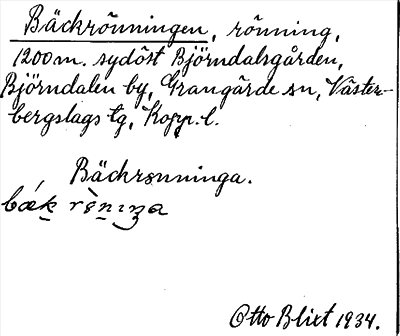 Bäckrönningen, rönning,
1200 m. sydöst Björndalsgården,
Björndalen by, Grangärde sn, Väster-
bergslags tg, Kopp. l.
Bäckrönninga.
Otto Blixt 1934.